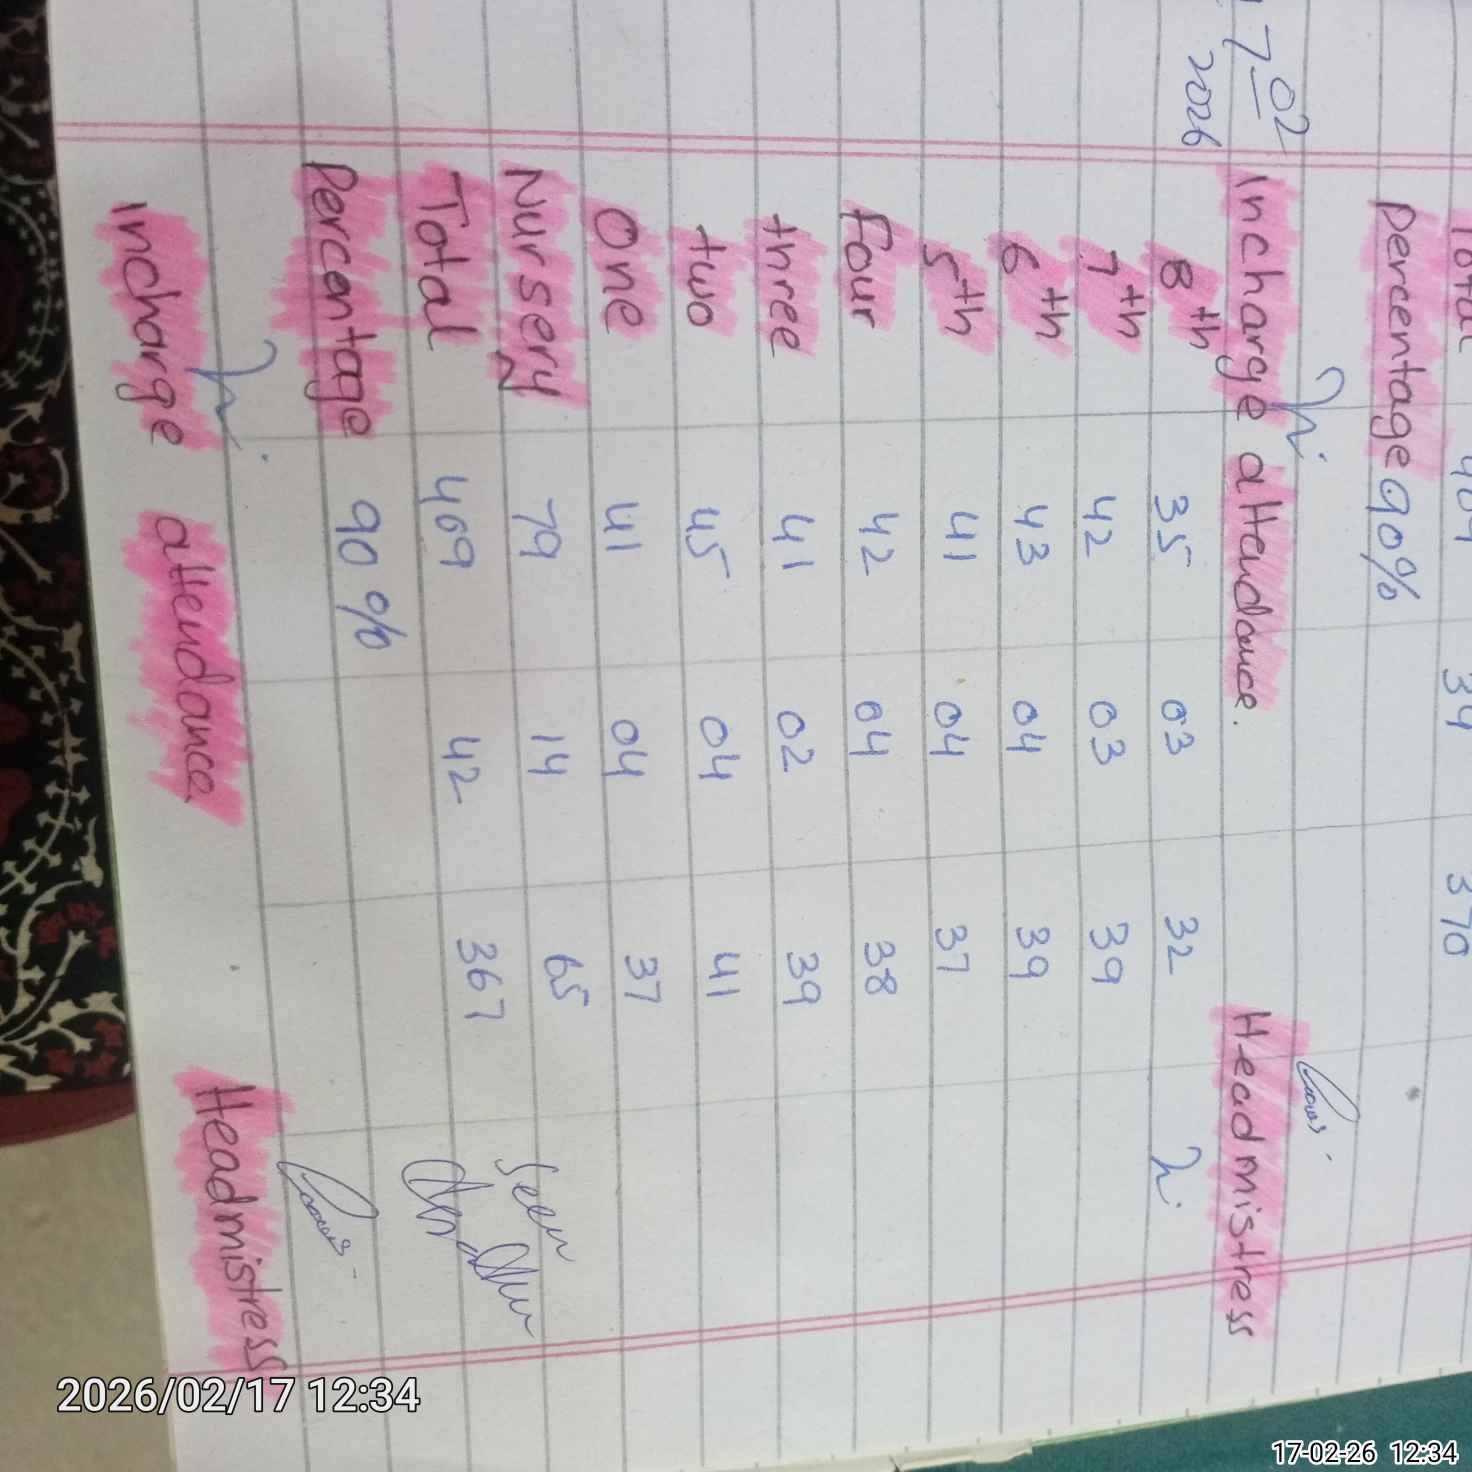 Total 409 39 370
Percentage 90%
17 02
2026
Incharge attendance. Headmistress
8th 35 03 32
7th 42 03 39
6th 43 04 39
5th 41 04 37
Four 42 04 38
three 41 02 39
two 45 04 41
One 41 04 37
Nursery 79 14 65
Seen
Total 409 42 367
Percentage 90%
Incharge attendance Headmistress
2026/02/17 12:34
17-02-26 12:34